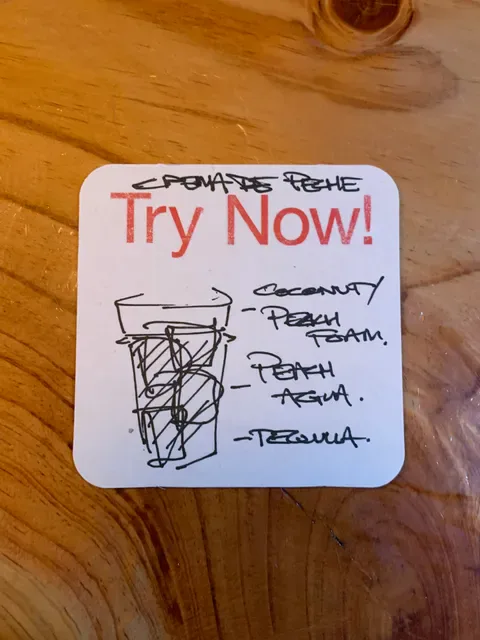 CREMA DE PECHE
Try Now!
COCONUTY
- PEACH
FOAM.
- PEACH
AGUA.
- TEQUILA.